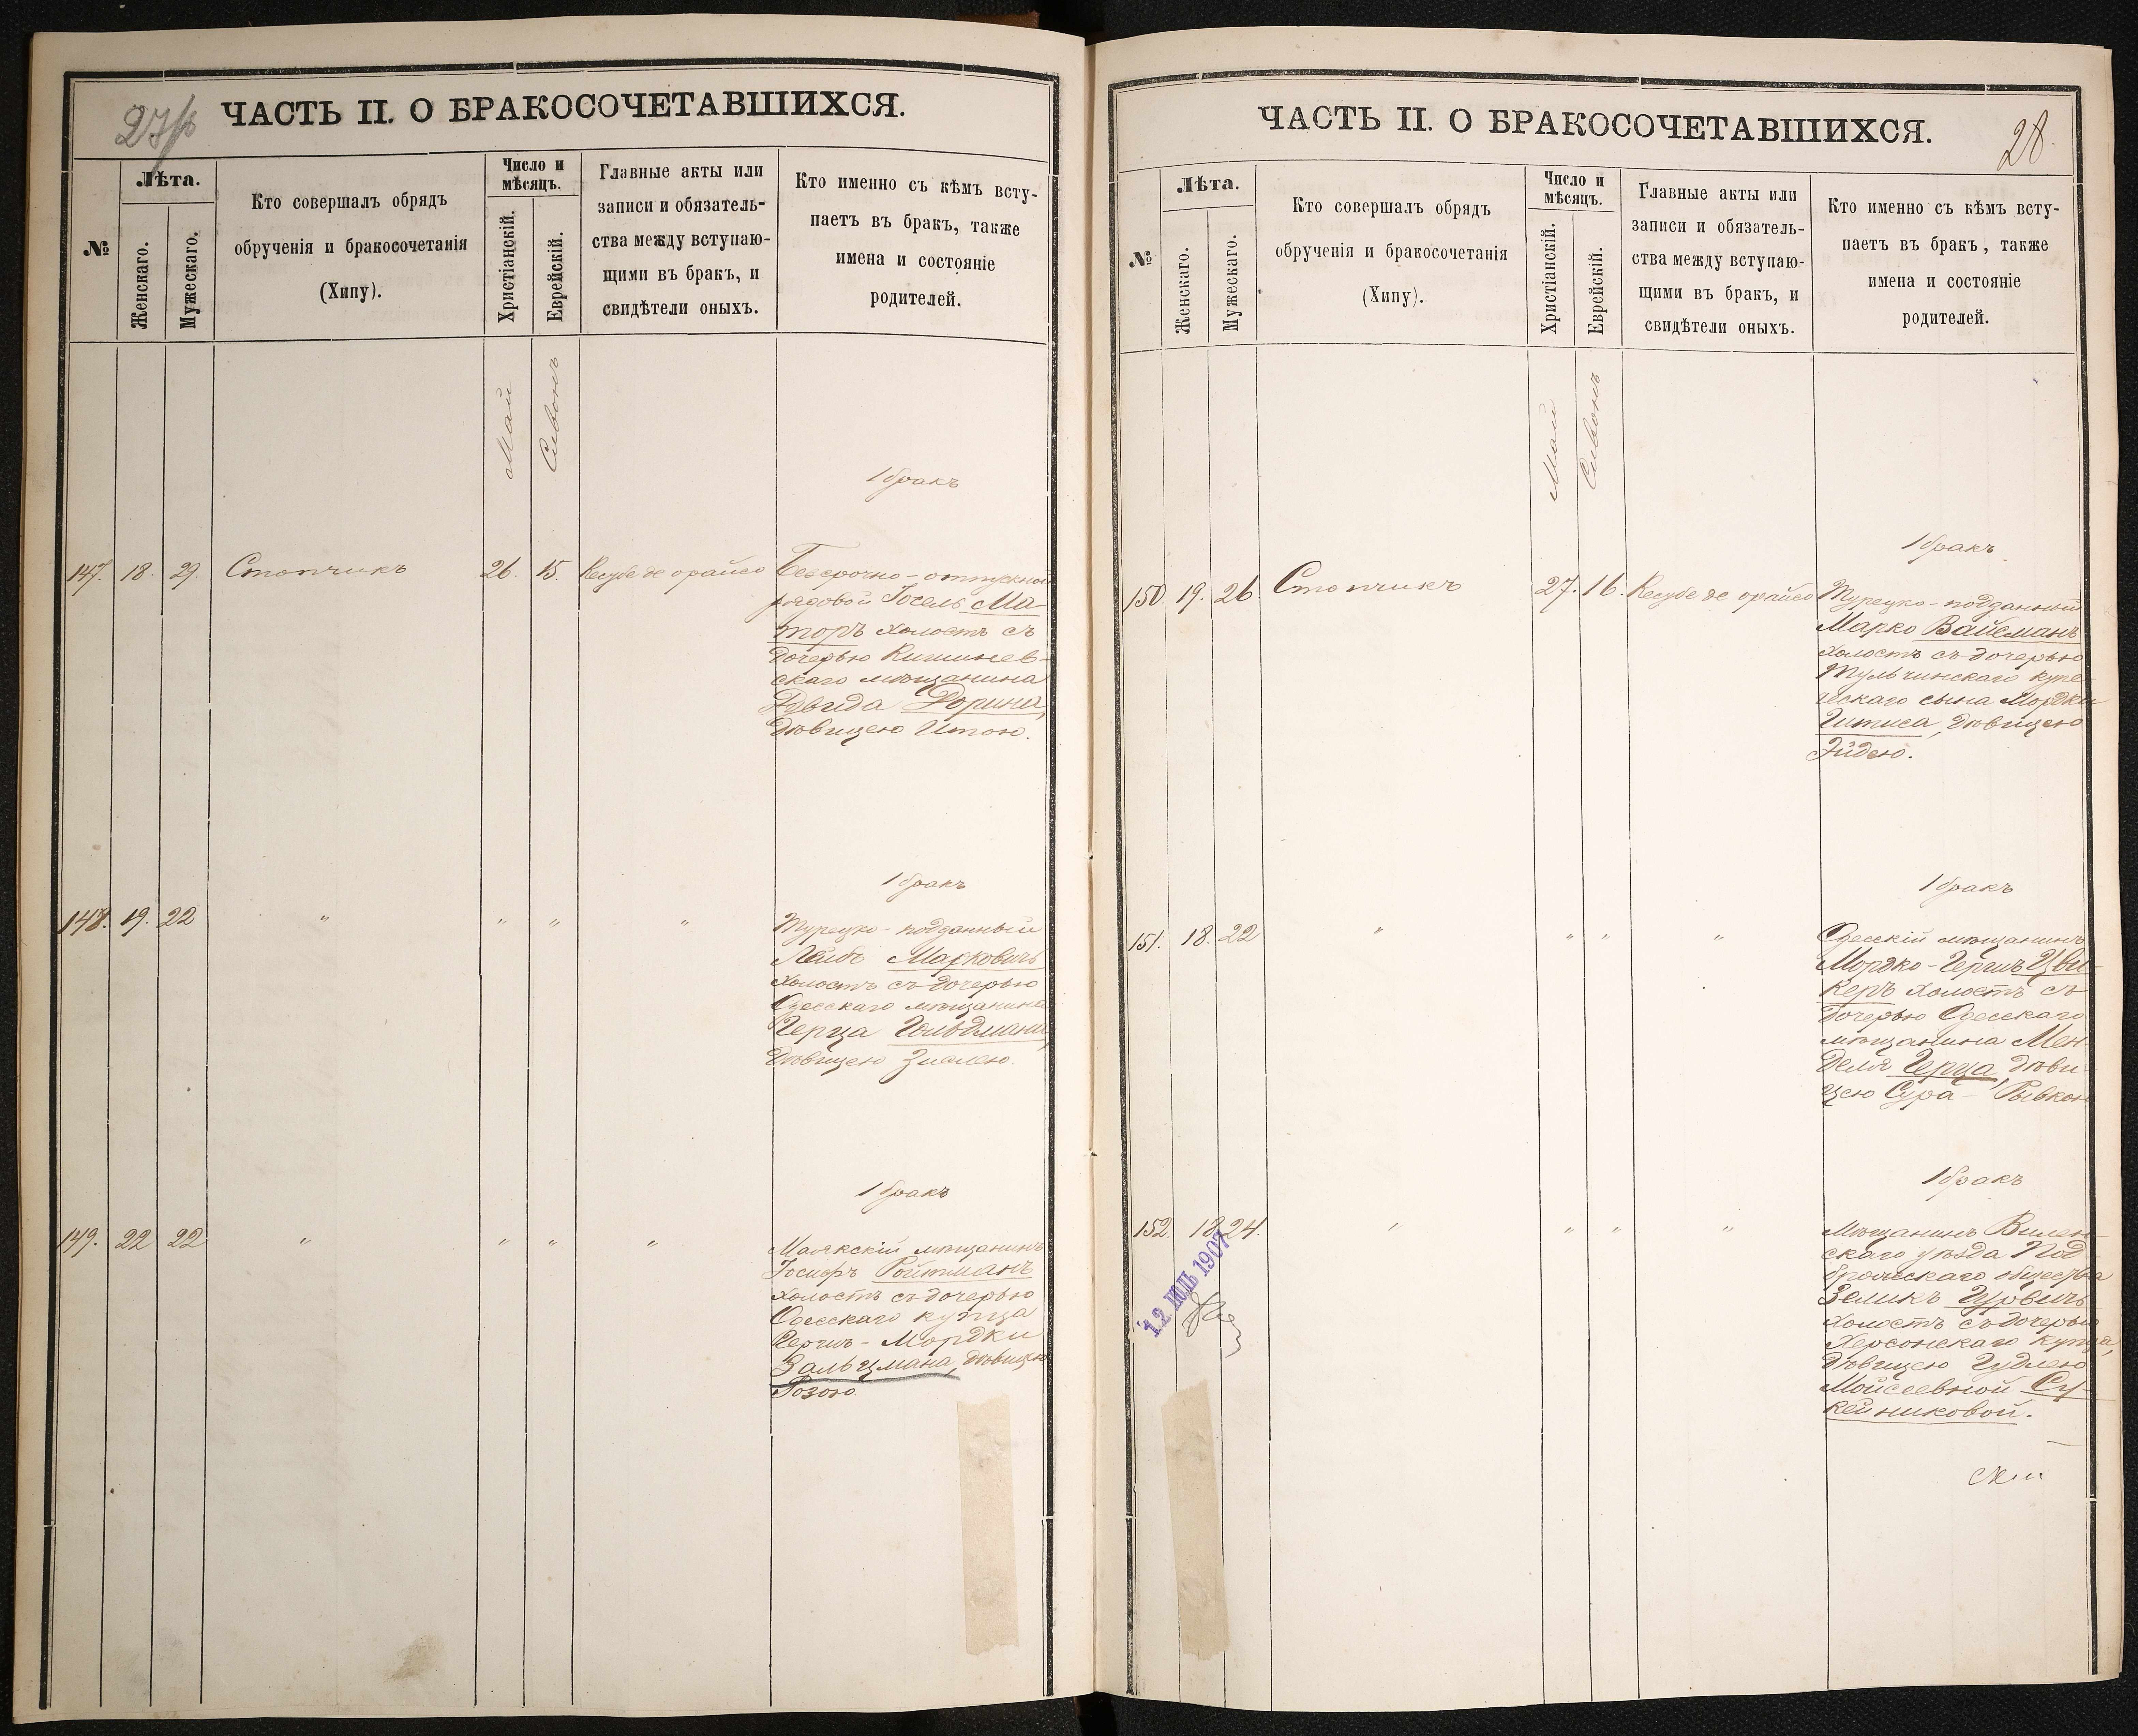 27/об
ЧАСТЬ II. О БРАКОСОЧЕТАВШИХСЯ.
№
Лѣта.
Женскаго.
Мужескаго.
Кто совершалъ обрядъ
обрученія и бракосочетанія
(Хипу).
Число и
мѣсяцъ.
Христіанскій.
Еврейскій.
Главные акты или
записи и обязатель-
ства между вступаю-
щими въ бракъ, и
свидѣтели оныхъ.
Кто именно съ кѣмъ всту-
паетъ въ бракъ, также
имена и состояніе
родителей.
Май
Сивонъ
1 бракъ
147. 18. 29. Стопчикъ 26. 15. Кесубе де орайсо Безсрочно-отпускной
рядовой Іосель Ма-
торъ холостъ съ
дочерью Кишинев-
скаго мѣщанина
Давида Дорина,
дѣвицею Итою.
1 бракъ
148. 19. 22 " " " " Турецко-подданный
Лейбъ Марковичъ
холостъ съ дочерью
Одесскаго мѣщанина
Герца Гольдмана,
дѣвицею Зислею.
1 бракъ
149. 22 22 " " " " Маякскій мѣщанинъ
Іосифъ Ройтманъ
холостъ съ дочерью
Одесскаго купца
Гершъ-Мордки
Зальцмана, дѣвицею
Розою.
ЧАСТЬ II. О БРАКОСОЧЕТАВШИХСЯ.
28.
№
Лѣта.
Женскаго.
Мужескаго.
Кто совершалъ обрядъ
обрученія и бракосочетанія
(Хипу).
Число и
мѣсяцъ.
Христіанскій.
Еврейскій.
Главные акты или
записи и обязатель-
ства между вступаю-
щими въ бракъ, и
свидѣтели оныхъ.
Кто именно съ кѣмъ всту-
паетъ въ бракъ, также
имена и состояніе
родителей.
Май
Сивонъ
1 бракъ
150. 19. 26 Стопчикъ 27. 16. Кесубе де орайсо Турецко-подданный
Марко Вайсманъ
холостъ съ дочерью
Тульчинскаго купе-
ческаго сына Мордки
Гитиса, дѣвицею
Эйдею.
1 бракъ
151. 18. 22 " " " " Одесскій мѣщанинъ
Мордко-Гершъ Цви-
керъ холостъ съ
дочерью Одесскаго
мѣщанина Мен-
деля Герца, дѣви-
цею Сура-Рывкою
1 бракъ
152. 18. 24. " " " " Мѣщанинъ Вилен-
скаго уѣзда Под-
бродскаго общества
Зеликъ Гуровичъ
холостъ съ дочерью
Херсонскаго купца,
дѣвицею Гудлею
Моисеевной Су-
кейниковой.
12 ИЮЛЬ 1907